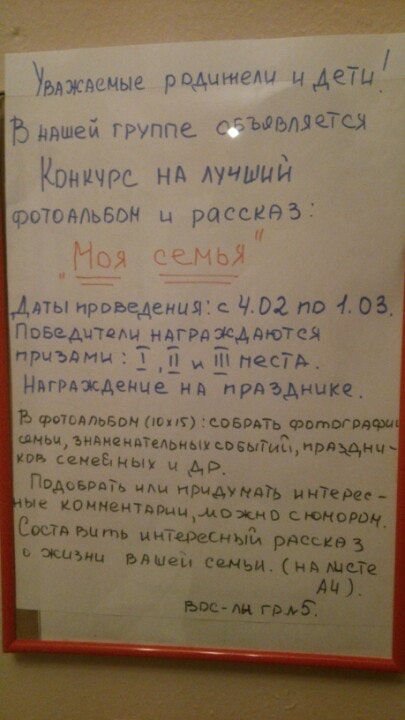 Уважаемые родители и дети!
В нашей группе объявляется
Конкурс на лучший
фотоальбом и рассказ:
"Моя семья"
Даты проведения: с 4.02 по 1.03.
Победители награждаются
призами: I, II и III места.
Награждение на празднике.
В фотоальбом (10х15): собрать фотографии
семьи, знаменательных событий, праздни-
ков семейных и др.
Подобрать или придумать интерес-
ные комментарии, можно с юмором.
Составить интересный рассказ
о жизни вашей семьи. (на листе
А4).
Вос-ли гр.№5.